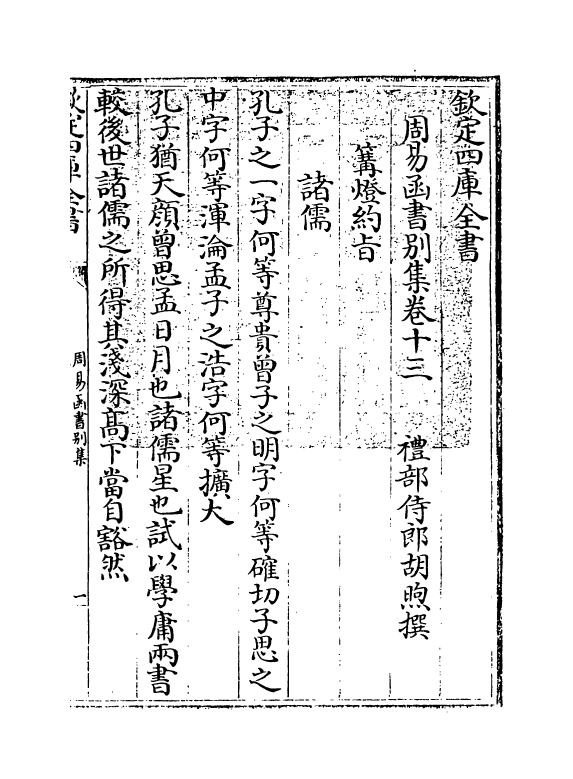 欽定四庫全書
周易函書別集卷十三　禮部侍郎胡煦撰
篝燈約旨
諸儒
孔子之一字何等尊貴曾子之明字何等確切子思之
中字何等渾淪孟子之浩字何等擴大
孔子猶天顔曾思孟日月也諸儒星也試以學庸兩書
較後世諸儒之所得其淺深髙下當自豁然
欽定四庫全書
周易函書別集
一